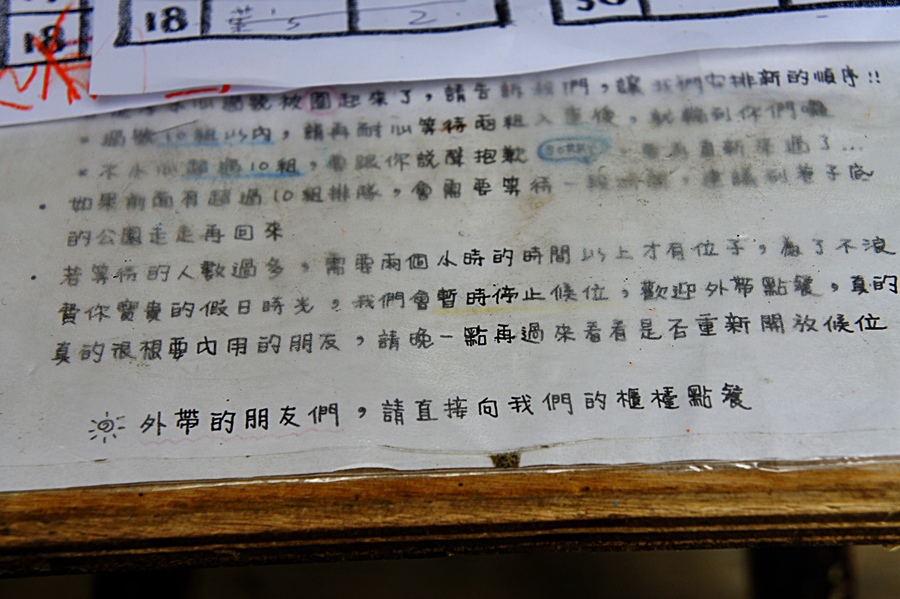 18 葉's 2
18
不小心過號被圈起來了，請告訴我們，讓我們安排新的順序!!
* 過號10組以內，請再耐心等待兩組入座後，就輪到你們囉
* 不小心超過10組，會跟你說聲抱歉 要為重新來過了...
• 如果前面有超過10組排隊，會需要等待一段時間，建議到巷子底
的公園走走再回來
• 若等待的人數過多，需要兩個小時的時間以上才有位子，為了不浪
費你寶貴的假日時光，我們會暫時停止候位，歡迎外帶點餐，真的
真的很想要內用的朋友，請晚一點再過來看看是否重新開放候位
外帶的朋友們，請直接向我們的櫃檯點餐